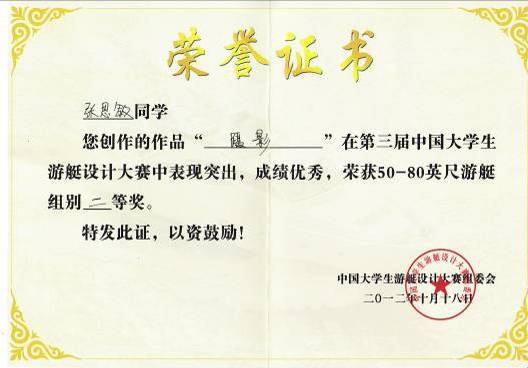 荣誉证书
张思敏同学
您创作的作品“ 影 ”在第三届中国大学生
游艇设计大赛中表现突出，成绩优秀，荣获50-80英尺游艇
组别二等奖。
特发此证，以资鼓励！
中国大学生游艇设计大赛组委会
二〇一二年十月十八日